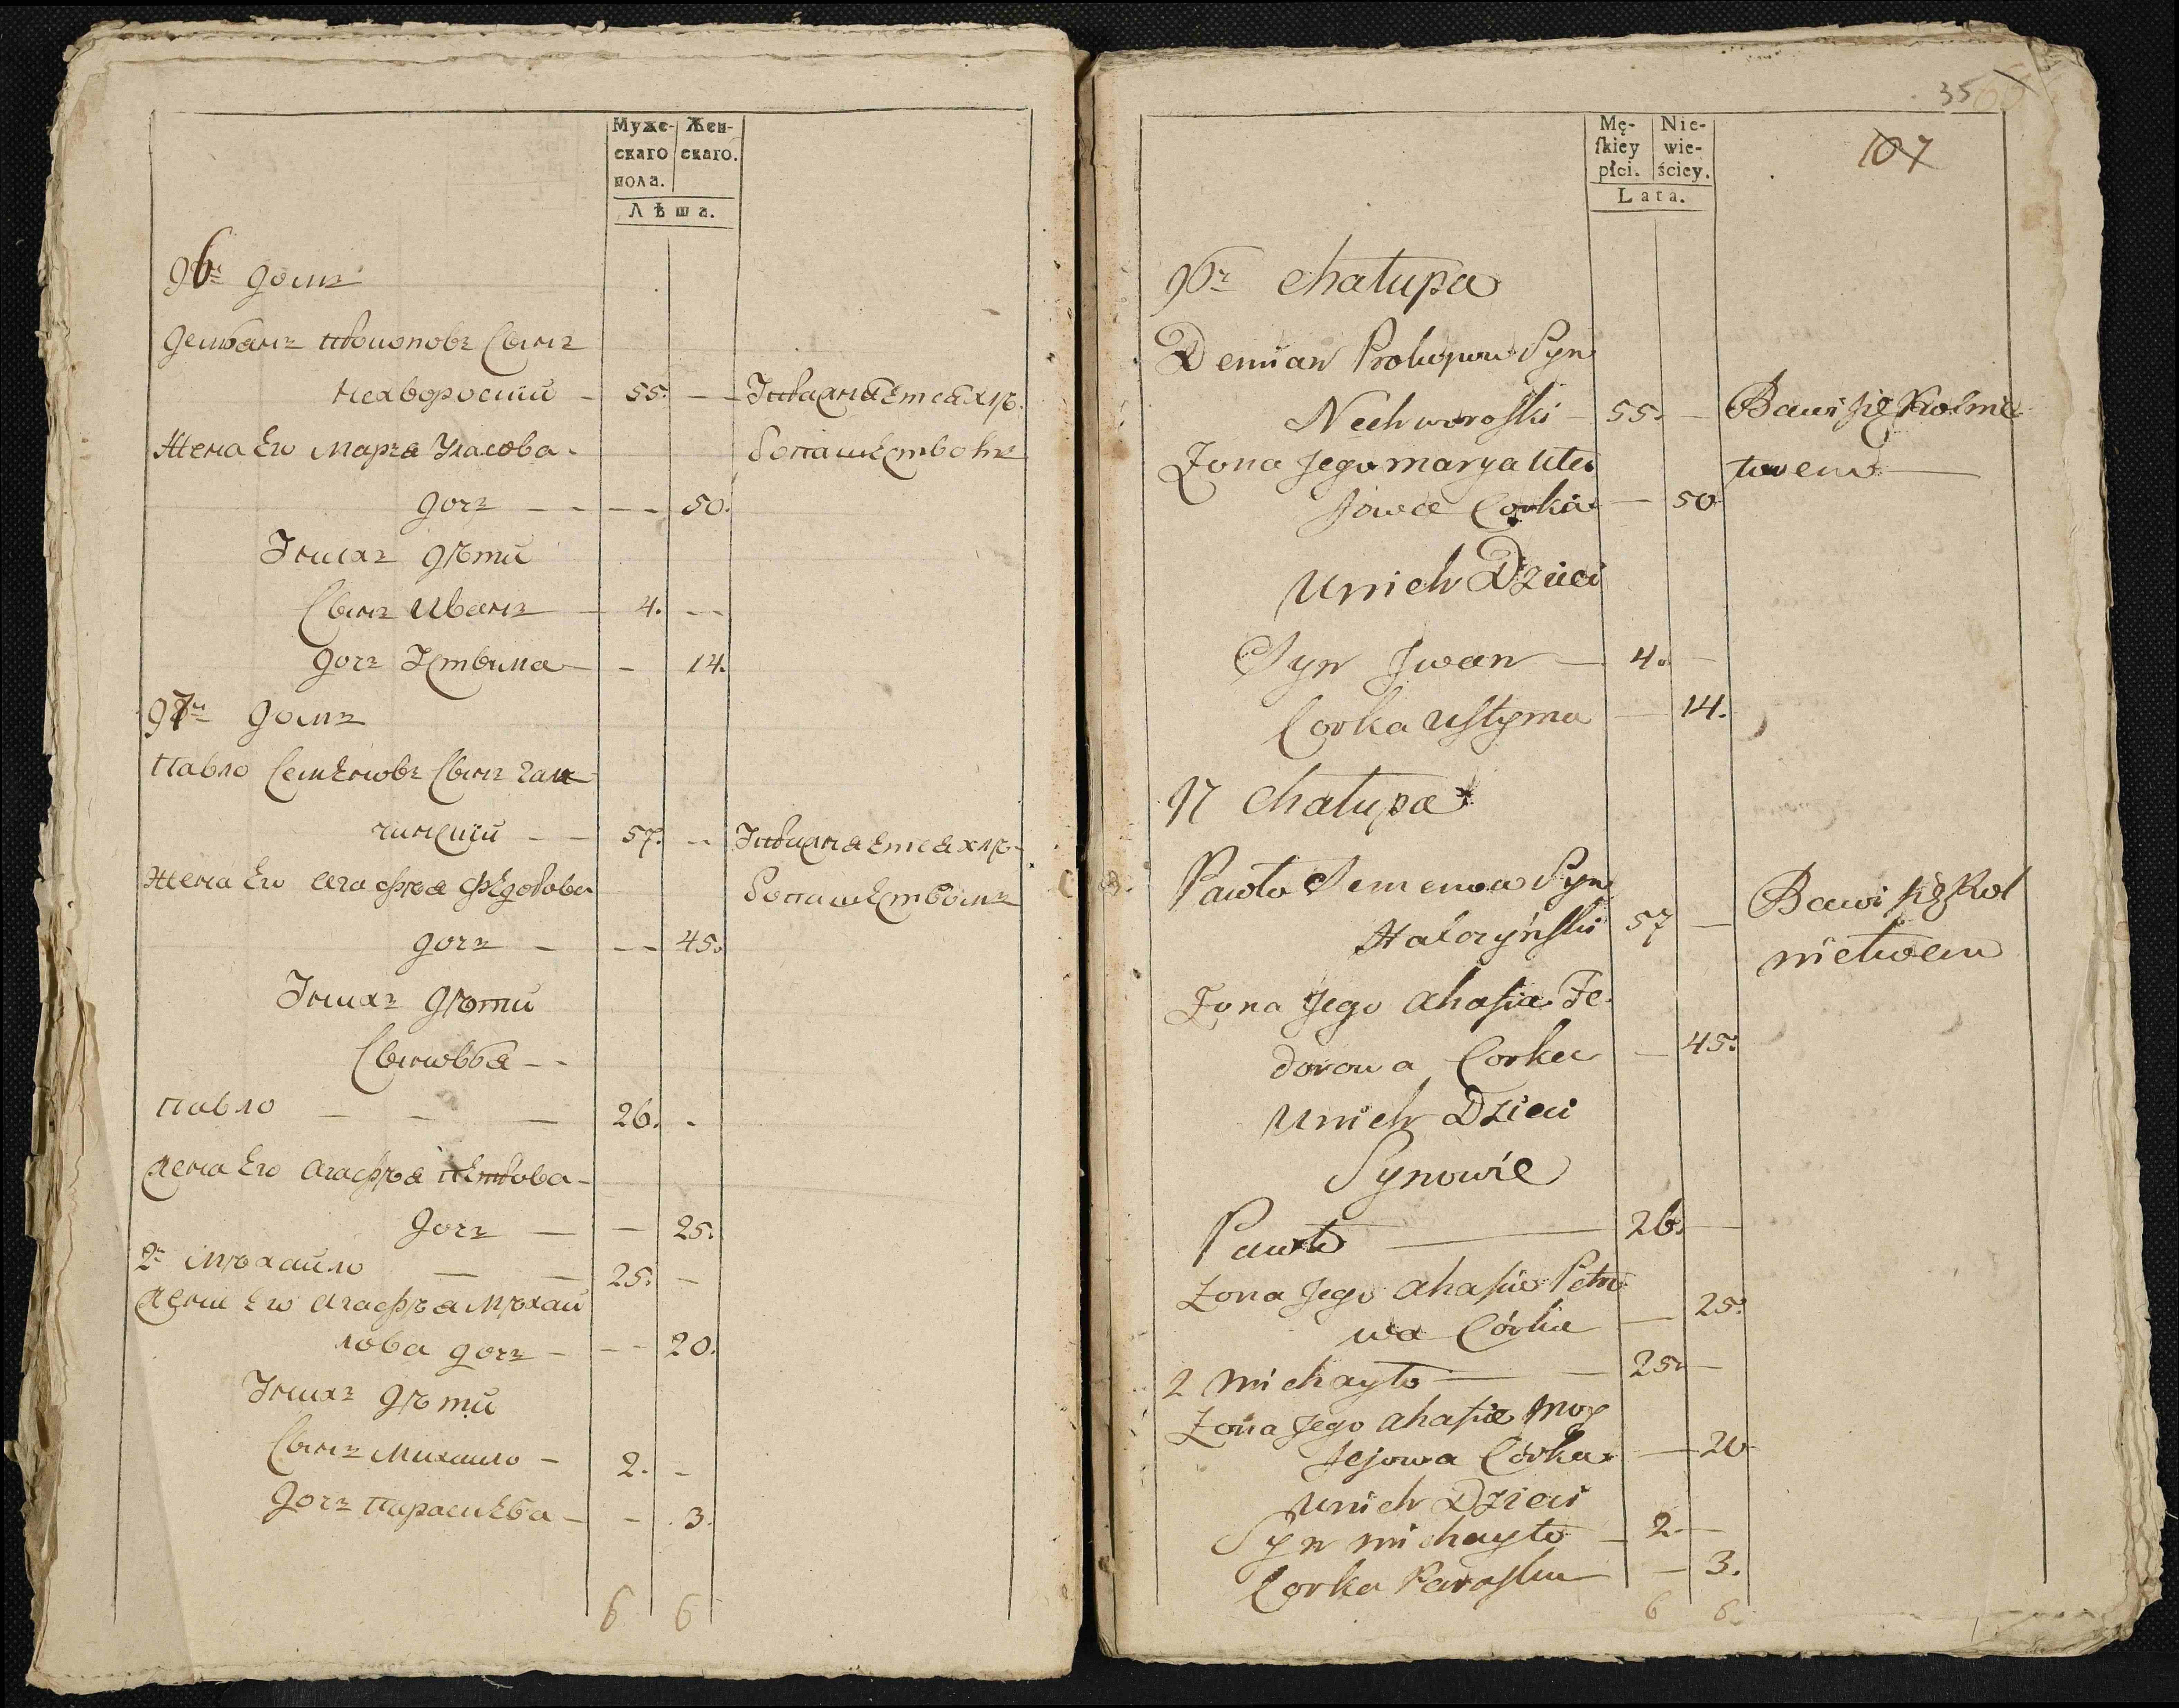 Муже- Жен-
скаго скаго.
пола.
Лѣта.
96й домъ
Демянъ Прокоповъ Сынъ
Нехвороскій - 55. - - Упражняется хлѣ-
Жена Его Марья Уласова - бопашествомъ
дочь - - - - 50.
У нихъ дѣти
Сынъ Иванъ - 4. - -
дочь Устина - - 14.
97й домъ
Павло Семеновъ Сынъ Гал-
чинскій - - 57. - - Упражняется хлѣ-
Жена Его Агафья Федорова бопашествомъ
дочь - - - 45.
У нихъ дѣти
Сыновья - -
Павло - - - 26. -
Жена Его Агафья Петрова -
дочь - - 25.
2й Михайло - - 25. -
Жена Его Агафья Михай
лова дочь - - - 20.
У нихъ дѣти
Сынъ Михайло - 2. -
Дочь Параскева - - 3.
6 6
35
107
Mę- Nie-
ſkiey wie-
płci. ściey.
Lata.
96ª Chałupa
Demian Prokopow Syn
Nechworoſki - 55. - Bawi ſię Rolnic
Żona Jego Marya Ula twem
ſowa Corka - 50
U nich Dzieci
Syn Jwan - 4. -
Corka Uſtyma - 14.
97 Chałupa
Pawło Semenow Syn
Hałczyńſki 57 - Bawi ſię Rol
nictwem
Żona Jego Ahafia Fe
dorowa Corka - 45.
U nich Dzieci
Synowie
Pawło - 26. -
Żona Jego Ahafia Petro
wa Córka - 25.
2 Michayło - - 25. -
Żona Jego Ahafia Moy
ſejowa Córka - 20
U nich Dzieci
Syn Michayło - 2. -
Corka Paraſka - 3.
6 6